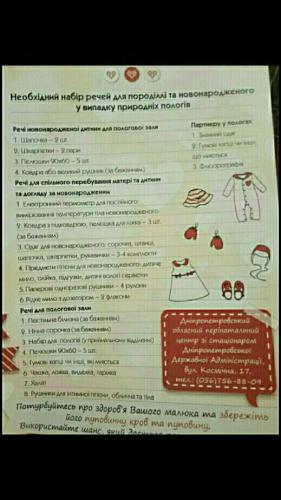 Необхідний набір речей для породіллі та новонародженого
у випадку природніх пологів
Речі новонародженої дитини для пологової зали
1. Шапочка – 2 шт.
2. Шкарпетки – 2 пари
3. Пелюшки 90х60 – 5 шт.
4. Ковдра або великий рушник (за бажанням)
Партнеру у пологах
1. Змінний одяг
2. Гумові капці чи інші,
що миються
3. Флюорографія
Речі для спільного перебування матері та дитини
та догляду за новонародженим
1. Електронний термометр для постійного
вимірювання температури тіла новонародженого
2. Ковдра з підковдрою, пелюшка для ліжка – 3 шт.
(за бажанням)
3. Одяг для новонародженого: сорочка, штанці,
шапочка, шкарпетки, рукавички – 3-4 комплекти
4. Предмети гігієни для новонародженого: дитяче
мило, олійка, підгузки, дитячі вологі серветки
5. Паперові одноразові рушники – 4 рулони
6. Рідке мило з дозатором – 2 флакони
Речі для пологової зали
1. Постільна білизна (за бажанням)
2. Нічна сорочка (за бажанням)
3. Набір для пологів (у приймальному відділенні)
4. Пелюшки 90х60 – 5 шт.
5. Гумові капці чи інші, які миються
6. Чашка, ложка, виделка, тарілка
7. Халат
8. Рушники для інтимної гігієни, обличчя та тіла
Дніпропетровський
обласний перінатальний
центр зі стаціонаром
Дніпропетровської
Державної Адміністрації,
вул. Космічна, 17,
тел.: (056)756-88-09
Потурбуйтесь про здоров'я Вашого малюка та збережіть
його пуповинну кров та пуповину.
Використайте шанс, який дається